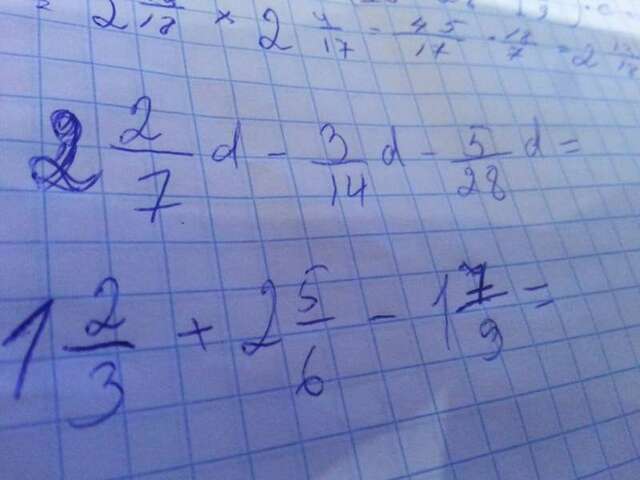 = 2 /18 × 2 4/17 = 45/17 · 17/7 = 2
2 2/7 d - 3/14 d - 5/28 d =
1 2/3 + 2 5/6 - 1 7/9 =